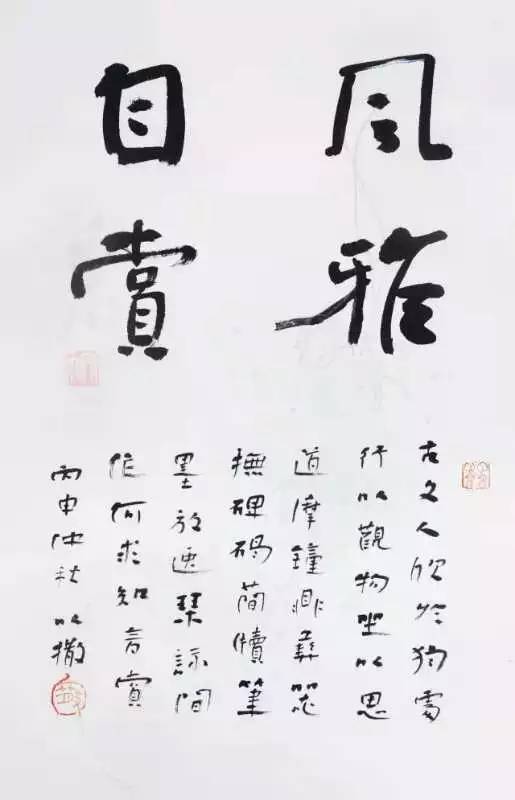 风雅
自賞
古文人欣於独處
行以觀物坐以思
道摩鐘鼎彝器
撫碑碣簡牘筆
墨放逸琴詠間
作何求知音賞
丙申仲秋以撒